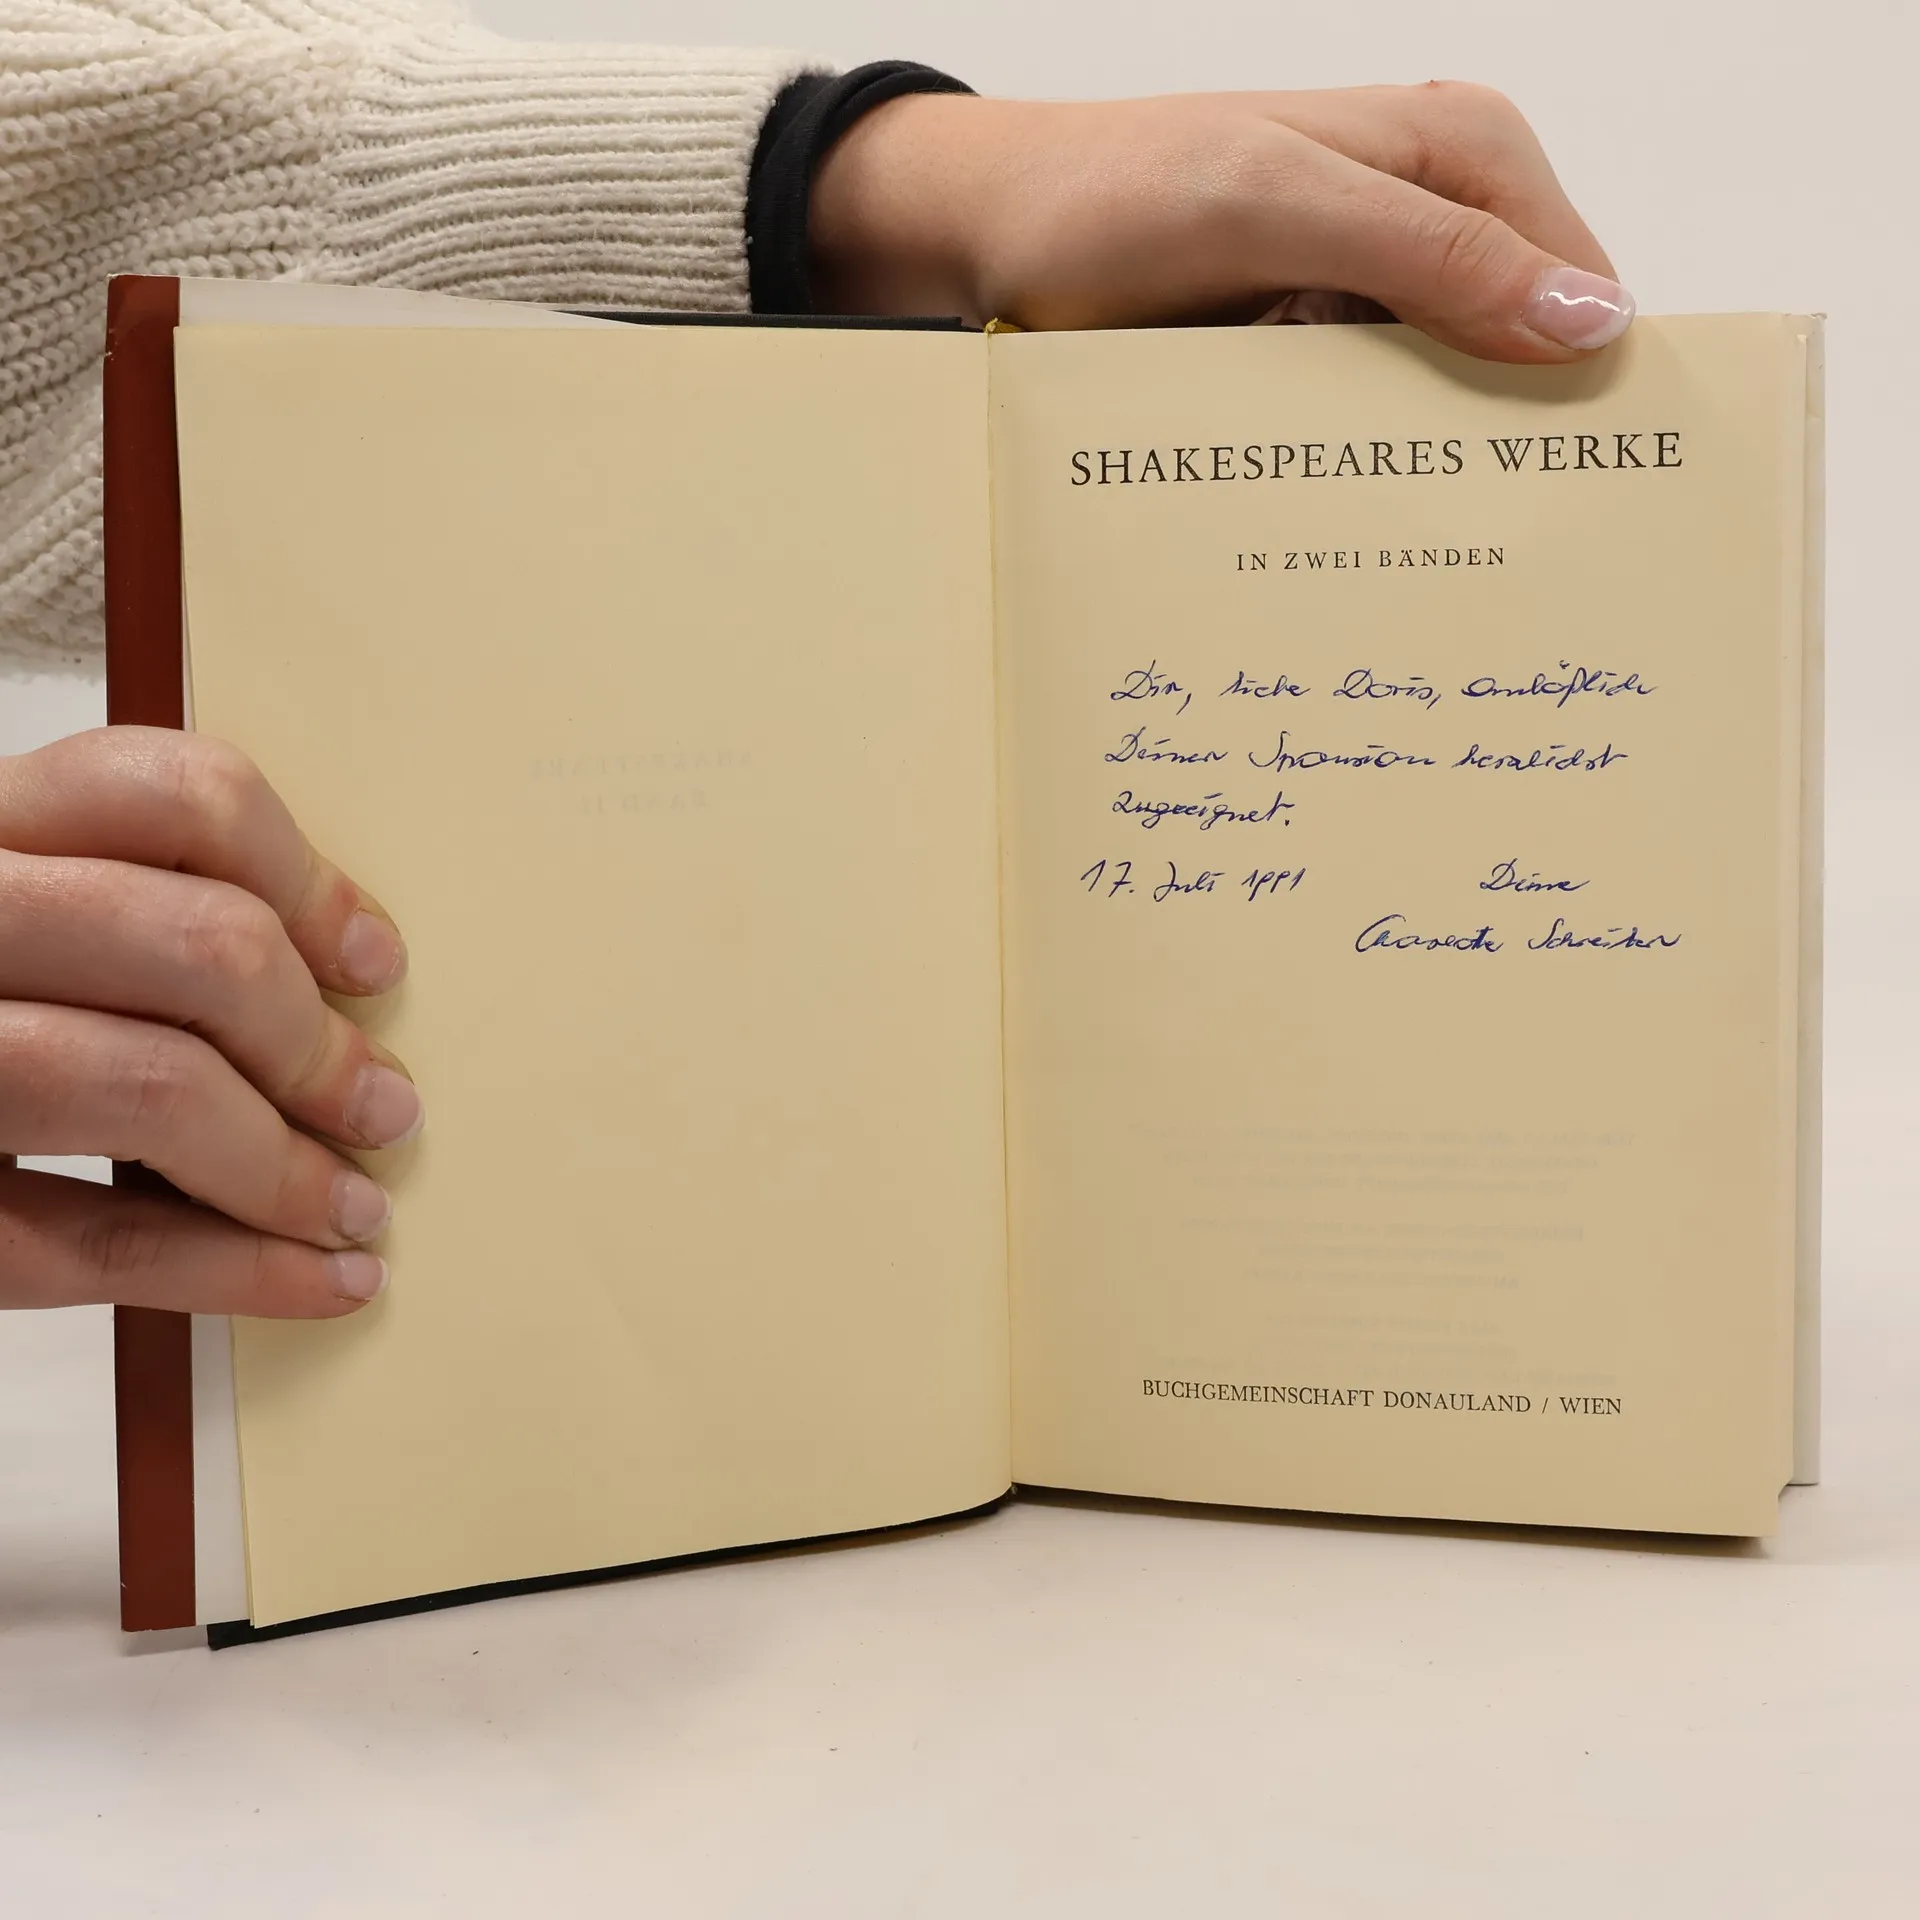 SHAKESPEARES WERKE
IN ZWEI BÄNDEN
Dir, liebe Doris, anläßlich
Deiner Sponsion herzlichst
zugeeignet.
17. Juli 1991 Deine
Schreiber
BUCHGEMEINSCHAFT DONAULAND / WIEN